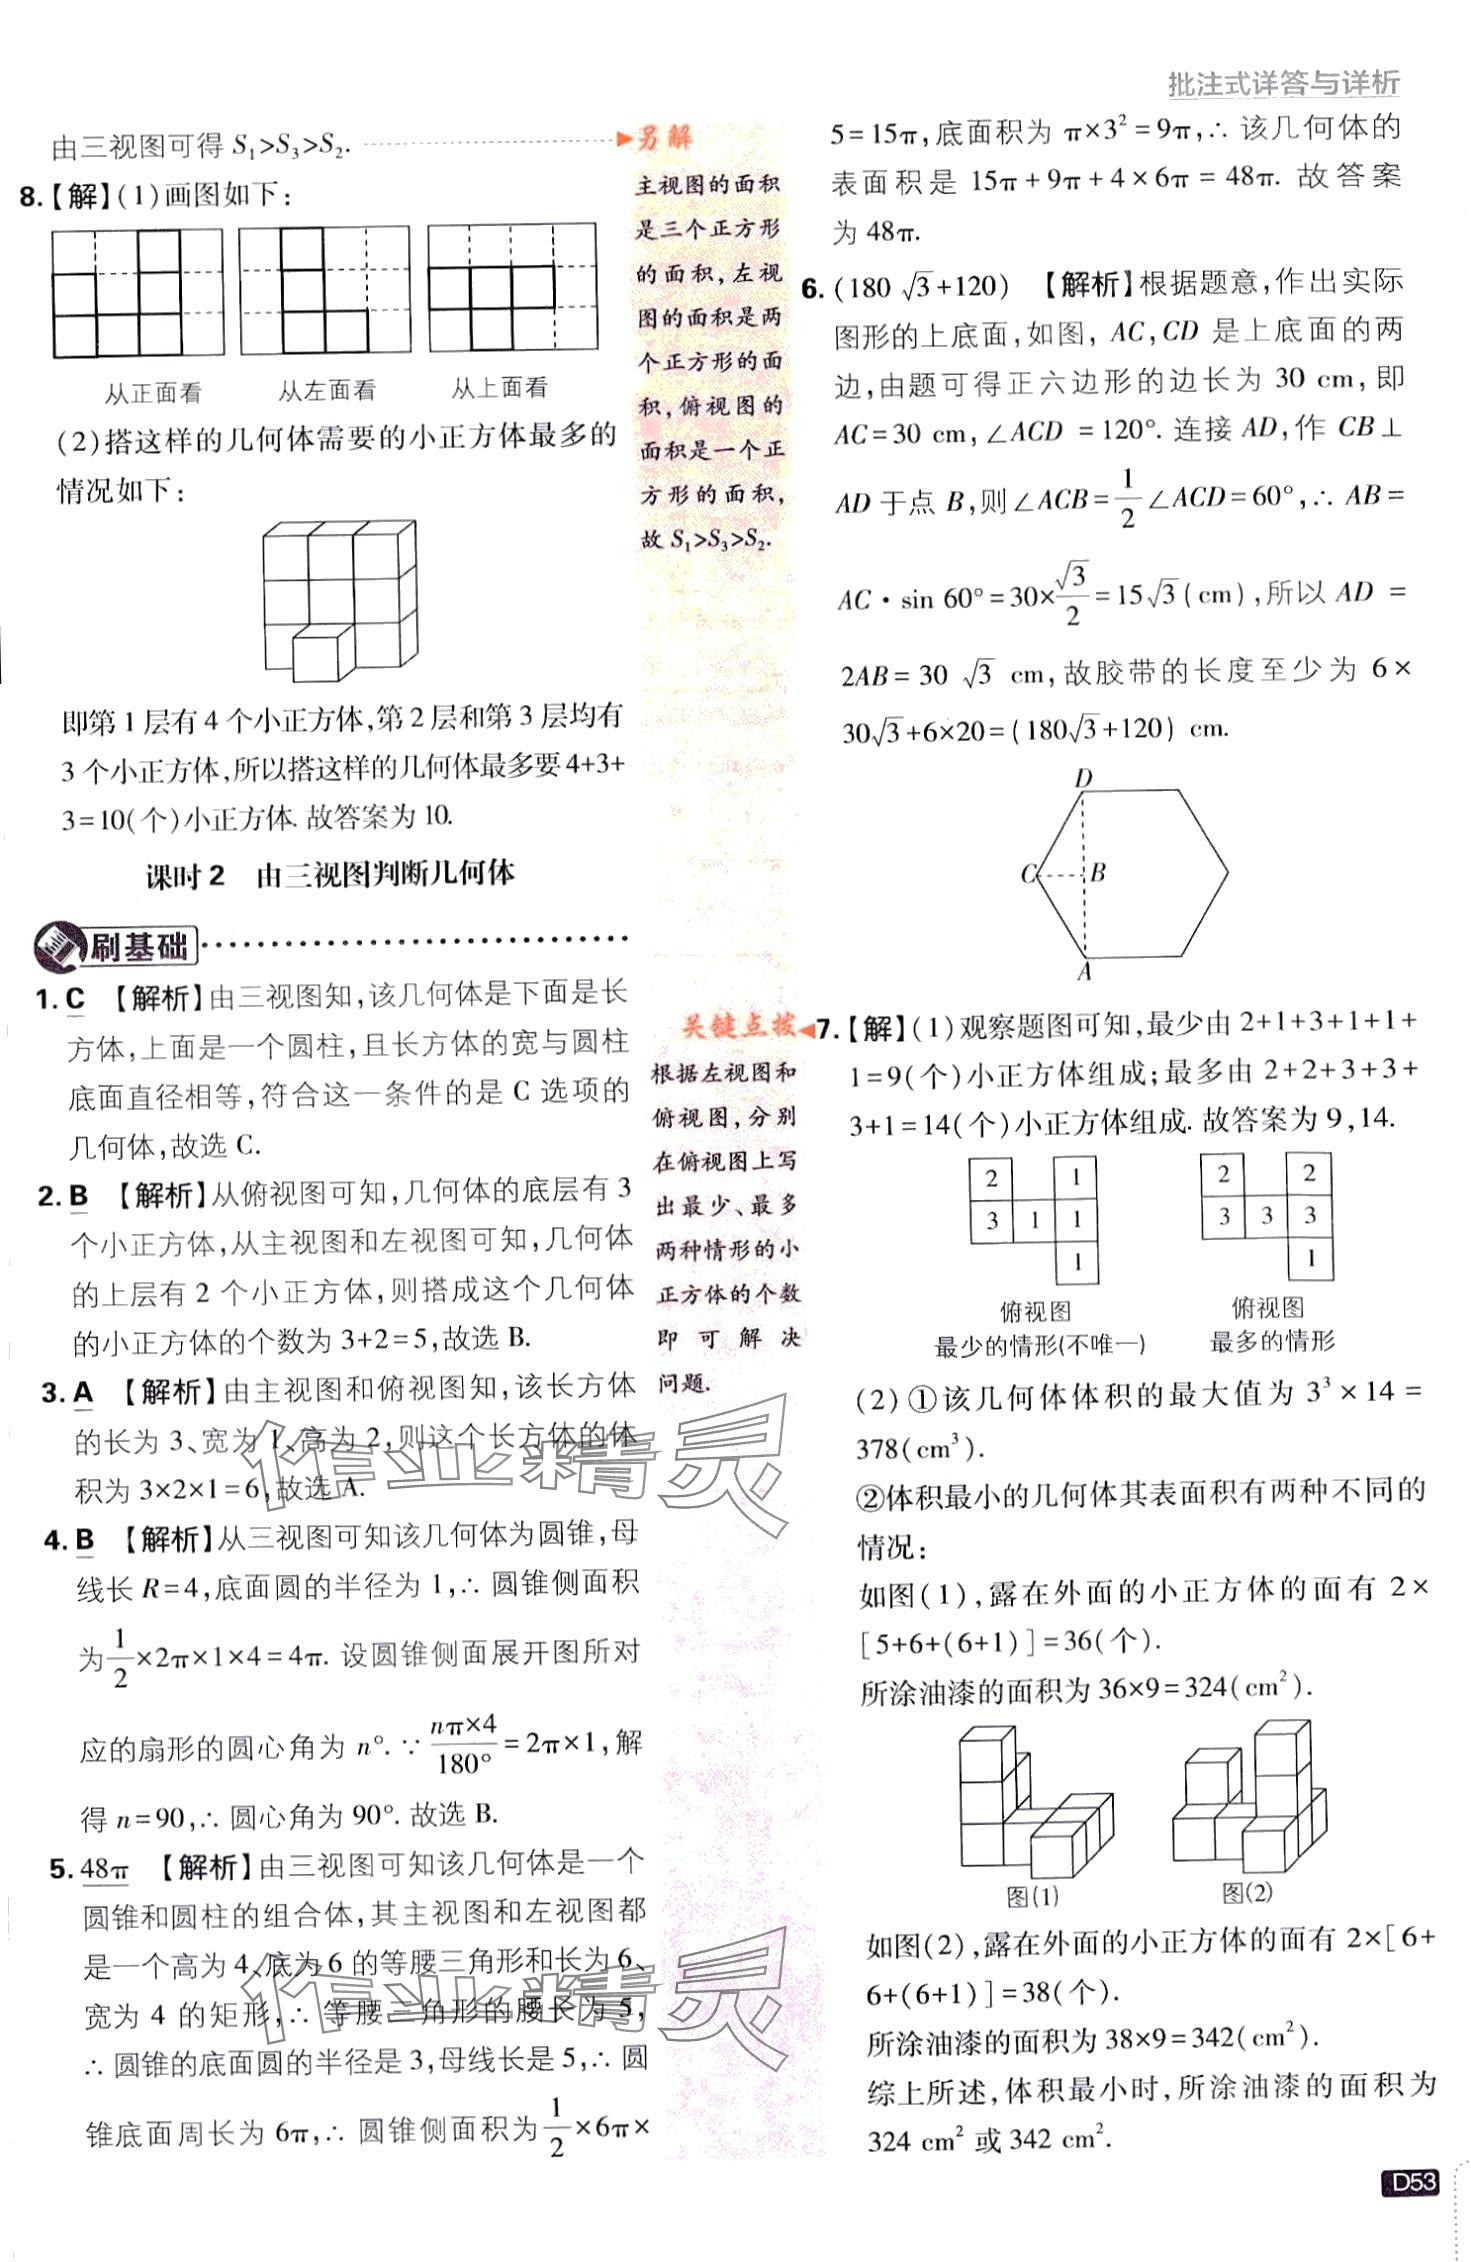 批注式详答与详析
由三视图可得 S₁>S₃>S₂.
8.【解】(1)画图如下:
从正面看
从左面看
从上面看
(2)搭这样的几何体需要的小正方体最多的
情况如下:
即第 1 层有 4 个小正方体,第 2 层和第 3 层均有
3 个小正方体,所以搭这样的几何体最多要 4+3+
3=10(个)小正方体. 故答案为 10.
课时 2 由三视图判断几何体
刷基础
1. C 【解析】由三视图知,该几何体是下面是长
方体,上面是一个圆柱,且长方体的宽与圆柱
底面直径相等,符合这一条件的是 C 选项的
几何体,故选 C.
2. B 【解析】从俯视图可知,几何体的底层有 3
个小正方体,从主视图和左视图可知,几何体
的上层有 2 个小正方体,则搭成这个几何体
的小正方体的个数为 3+2=5,故选 B.
3. A 【解析】由主视图和俯视图知,该长方体
的长为 3、宽为 1、高为 2,则这个长方体的体
积为 3×2×1=6,故选 A.
4. B 【解析】从三视图可知该几何体为圆锥,母
线长 R=4,底面圆的半径为 1,∴ 圆锥侧面积
为1/2×2π×1×4=4π. 设圆锥侧面展开图所对
应的扇形的圆心角为 n°. ∵ nπ×4/180°=2π×1,解
得 n=90,∴ 圆心角为 90°. 故选 B.
5. 48π 【解析】由三视图可知该几何体是一个
圆锥和圆柱的组合体,其主视图和左视图都
是一个高为 4、底为 6 的等腰三角形和长为 6、
宽为 4 的矩形,∴ 等腰三角形的腰长为 5,
∴ 圆锥的底面圆的半径是 3,母线长是 5,∴ 圆
锥底面周长为 6π,∴ 圆锥侧面积为1/2×6π×
另解
主视图的面积
是三个正方形
的面积,左视
图的面积是两
个正方形的面
积,俯视图的
面积是一个正
方形的面积,
故 S₁>S₃>S₂.
关键点拨
根据左视图和
俯视图,分别
在俯视图上写
出最少、最多
两种情形的小
正方体的个数
即可解决
问题.
5=15π,底面积为 π×3²=9π,∴ 该几何体的
表面积是 15π+9π+4×6π=48π. 故答案
为 48π.
6. (180√3+120) 【解析】根据题意,作出实际
图形的上底面,如图, AC,CD 是上底面的两
边,由题可得正六边形的边长为 30 cm,即
AC=30 cm,∠ACD =120°. 连接 AD,作 CB⊥
AD 于点 B,则∠ACB=1/2∠ACD=60°,∴ AB=
AC·sin 60°=30×√3/2=15√3(cm),所以 AD =
2AB=30 √3 cm,故胶带的长度至少为 6×
30√3+6×20=(180√3+120) cm.
D
C
B
A
7.【解】(1)观察题图可知,最少由 2+1+3+1+1+
1=9(个)小正方体组成;最多由 2+2+3+3+
3+1=14(个)小正方体组成. 故答案为 9,14.
2 1
3 1 1
1
俯视图
最少的情形(不唯一)
2 2
3 3 3
1
俯视图
最多的情形
(2)①该几何体体积的最大值为 3³×14=
378(cm³).
②体积最小的几何体其表面积有两种不同的
情况:
如图(1),露在外面的小正方体的面有 2×
[5+6+(6+1)]=36(个).
所涂油漆的面积为 36×9=324(cm²).
图(1)
图(2)
如图(2),露在外面的小正方体的面有 2×[6+
6+(6+1)]=38(个).
所涂油漆的面积为 38×9=342(cm²).
综上所述,体积最小时,所涂油漆的面积为
324 cm² 或 342 cm².
D53
作业精灵
作业精灵